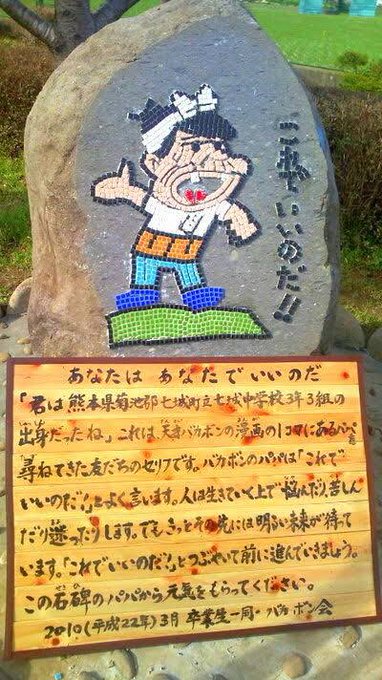 これでいいのだ!!
あなたは あなたでいいのだ
「君は熊本県菊池郡七城町立七城中学校3年3組の
出身だったね」これは、天才バカボンの漫画の1コマにあるパパを
尋ねてきた友だちのセリフです。バカボンのパパは「これで
いいのだ!」とよく言います。人は生きていく上で悩んだり、苦しん
だり迷ったりします。でもきっとその先には明るい未来が待って
います。「これでいいのだ!」とつぶやいて前に進んでいきましょう。
この石碑のパパから元気をもらってください。
2010(平成22年)3月 卒業生一同・バカボン会